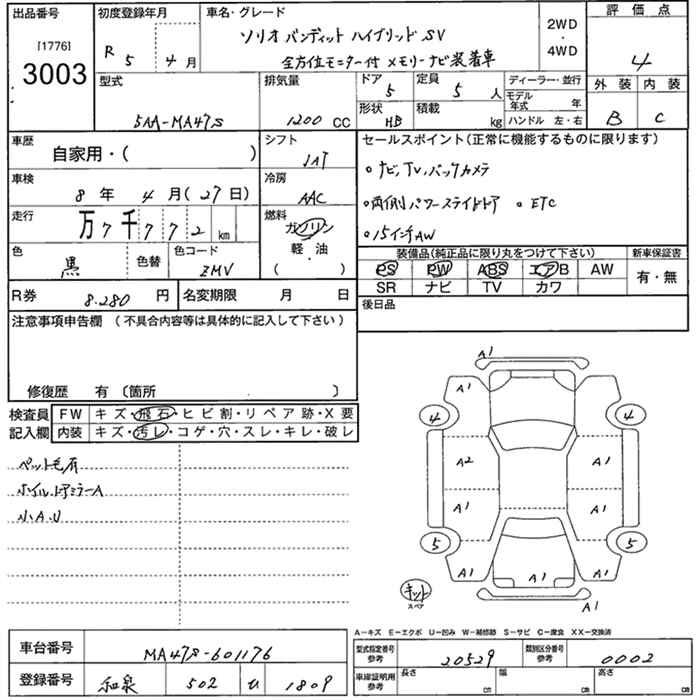 出品番号
[1776]
3003
初度登録年月
R 5 4 月
車名・グレード
ソリオ バンディット ハイブリッド SV
全方位モニター付 メモリーナビ装着車
2WD
・
4WD
評価点
4
外装 内装
B C
型式
5AA-MA47S
排気量
1200 CC
ドア
5
定員
5 人
形状
HB
積載
kg
ディーラー・並行
モデル年式 年
ハンドル 左・右
車歴
自家用・( )
シフト
IAT
車検
8 年 4 月(27日)
冷房
AAC
走行
万 7 千 7 7 2 km
燃料
ガソリン
軽・油
( )
色
黒
色替
色コード
ZMV
R券
8.280 円
名変期限 月 日
セールスポイント(正常に機能するものに限ります)
。ナビ,TV,バックカメラ
。両側パワースライドドア 。ETC
。15インチAW
装備品(純正品に限り丸をつけて下さい)
PS PW ABS エアB AW
SR ナビ TV カワ
新車保証書
有・無
後日品
注意事項申告欄 (不具合内容等は具体的に記入して下さい)
修復歴 有 〔箇所 〕
検査員
記入欄
FW キズ・飛石・ヒビ割・リペア跡・X要
内装 キズ・汚レ・コゲ・穴・スレ・キレ・破レ
ペット毛有
ホイル,ドアミラーA
小A.U
A1
A1
4 4
A2 A1
A1 A1
5 5
A1 A1 A1
A1
キット
スペア
A-キズ E-エクボ U-凹み W-補修跡 S-サビ C-腐食 XX-交換済
車台番号
MA47S-601176
登録番号
和泉 502 い 1809
型式指定番号
参考
20529
類別区分番号
参考
0002
車庫証明用
参考
長さ cm
幅 cm
高さ cm